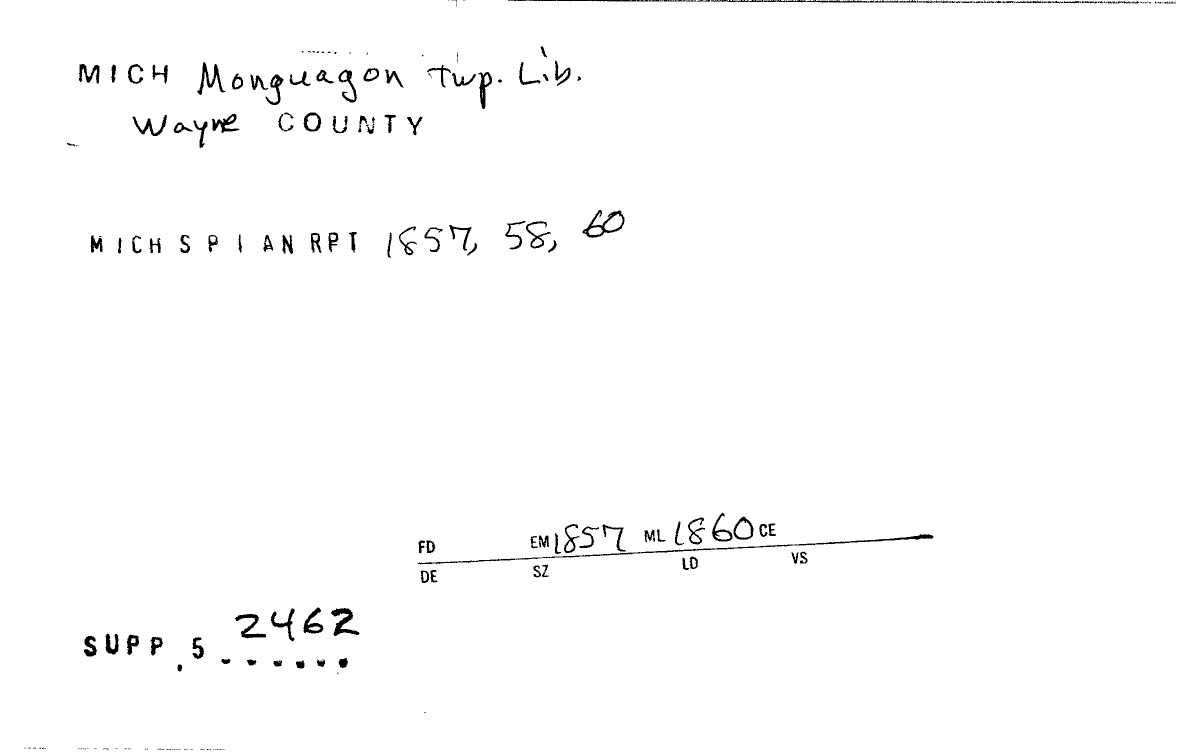 MICH Monguagon twp. Lib.
Wayne COUNTY
MICH S P I AN RPT 1857, 58, 60
FD EM 1857 ML 1860 CE
DE SZ LD VS
SUPP. 5 2462